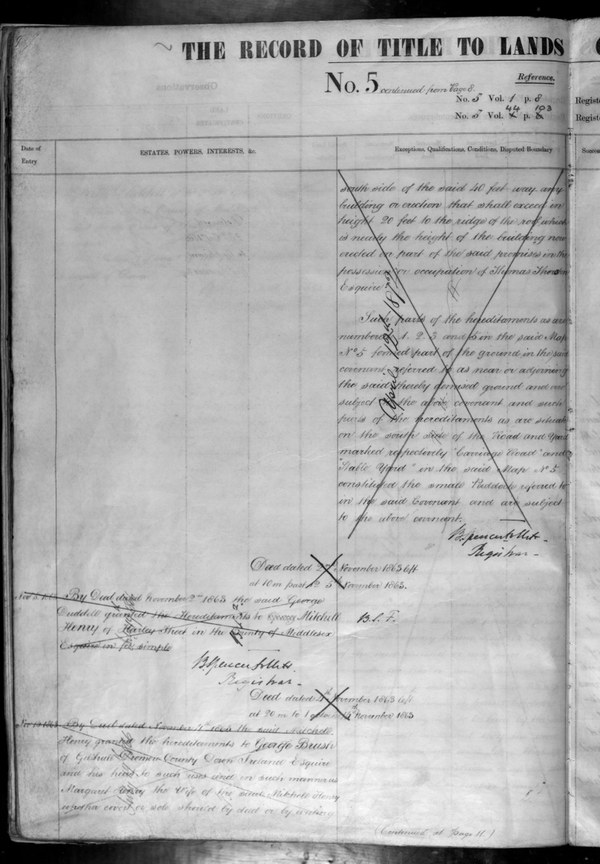 THE RECORD OF TITLE TO LANDS
No. 5 continued from Page 8.
Reference.
No. 5 Vol. 1 p. 8
No. 5 Vol. 44 p. 103
Date of Entry
ESTATES, POWERS, INTERESTS, &c.
Exceptions, Qualifications, Conditions, Disputed Boundary
Registe
Registe
south side of the said 40 feet way any
building or erection that shall exceed in
height 20 feet to the ridge of the roof which
is nearly the height of the building now
erected on part of the said premises in the
possession or occupation of Thomas
Esquire
Such parts of the hereditaments as are
numbered 1. 2. 3 and 5 in the said Map
No 5 formed part of the ground in the said
covenant referred to as near or adjoining
the said thereby demised ground and are
subject to the above covenant and such
parts of the hereditaments as are situate
on the south side of the Road and Yard
marked respectively "Carriage Road" and
"Stable Yard" in the said Map No 5
constituted the small Paddock referred to
in the said Covenant and are subject
to the above covenant.
April
B. Spencer Follett
Registrar
Deed dated 2nd November 1863 left
at 10 m past 2 5 November 1863.
By Deed dated November 2nd 1863 the said George
Duddell granted the Hereditaments to George Mitchell
Henry of Harley Street in the County of Middlesex
Esquire in fee simple
B.S.F.
B. Spencer Follett
Registrar
Deed dated November 1863 left
at 20 m to 1 November 1863
By Deed dated November 1863 the said Mitchell
Henry granted the hereditaments to George Brush
of Dromore County Down Ireland Esquire
and his heirs to such uses and in such manner as
Margaret Henry the Wife of the said Mitchell Henry
whether covert or sole should by deed or by writing
(Continued at Page 11.)